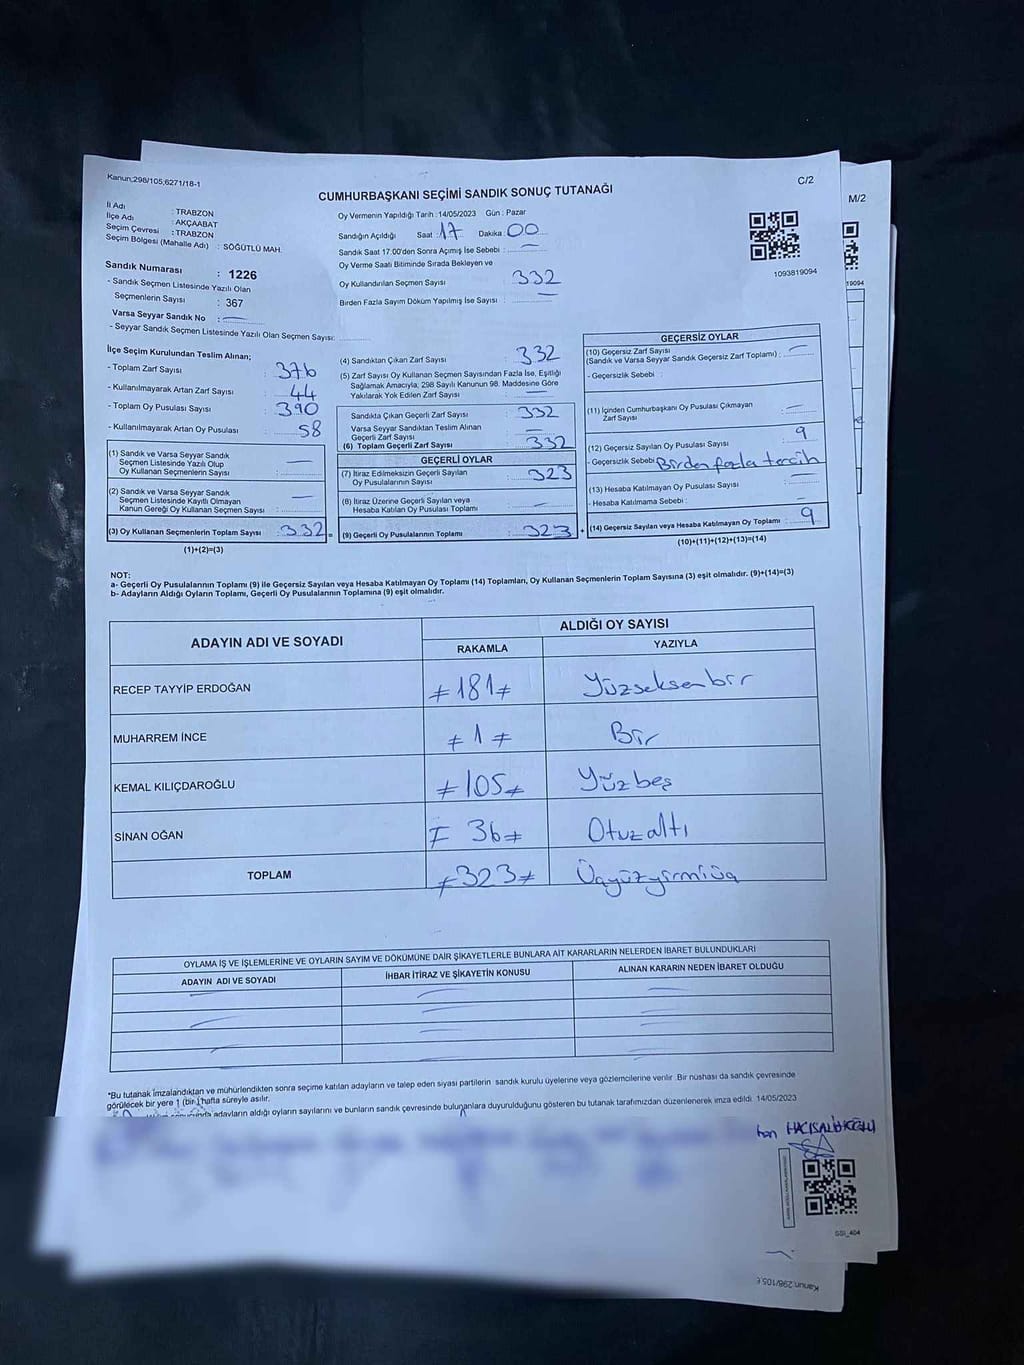 Kanun;298/105;6271/18-1
C/2
M/2
CUMHURBAŞKANI SEÇİMİ SANDIK SONUÇ TUTANAĞI
İl Adı : TRABZON
İlçe Adı : AKÇAABAT
Seçim Çevresi : TRABZON
Seçim Bölgesi (Mahalle Adı) : SÖĞÜTLÜ MAH.
Sandık Numarası : 1226
- Sandık Seçmen Listesinde Yazılı Olan
Seçmenlerin Sayısı : 367
Varsa Seyyar Sandık No :
- Seyyar Sandık Seçmen Listesinde Yazılı Olan Seçmen Sayısı:
Oy Vermenin Yapıldığı Tarih :14/05/2023 Gün : Pazar
Sandığın Açıldığı Saat : 17 Dakika : 00
Sandık Saat 17.00'den Sonra Açımış İse Sebebi :
Oy Verme Saati Bitiminde Sırada Bekleyen ve
Oy Kullandırılan Seçmen Sayısı : 332
Birden Fazla Sayım Döküm Yapılmış İse Sayısı :
1093819094
19094
İlçe Seçim Kurulundan Teslim Alınan;
- Toplam Zarf Sayısı : 376
- Kullanılmayarak Artan Zarf Sayısı : 44
- Toplam Oy Pusulası Sayısı : 390
- Kullanılmayarak Artan Oy Pusulası : 58
(1) Sandık ve Varsa Seyyar Sandık
Seçmen Listesinde Yazılı Olup
Oy Kullanan Seçmenlerin Sayısı :
(2) Sandık ve Varsa Seyyar Sandık
Seçmen Listesinde Kayıtlı Olmayan
Kanun Gereği Oy Kullanan Seçmen Sayısı :
(3) Oy Kullanan Seçmenlerin Toplam Sayısı : 332 =
(1)+(2)=(3)
(4) Sandıktan Çıkan Zarf Sayısı : 332
(5) Zarf Sayısı Oy Kullanan Seçmen Sayısından Fazla İse, Eşitliği
Sağlamak Amacıyla; 298 Sayılı Kanunun 98. Maddesine Göre
Yakılarak Yok Edilen Zarf Sayısı :
Sandıkta Çıkan Geçerli Zarf Sayısı : 332
Varsa Seyyar Sandıktan Teslim Alınan
Geçerli Zarf Sayısı :
(6) Toplam Geçerli Zarf Sayısı : 332
GEÇERLİ OYLAR
(7) İtiraz Edilmeksizin Geçerli Sayılan
Oy Pusulalarının Sayısı : 323
(8) İtiraz Üzerine Geçerli Sayılan veya
Hesaba Katılan Oy Pusulası Toplamı :
(9) Geçerli Oy Pusulalarının Toplamı : 323 +
GEÇERSİZ OYLAR
(10) Geçersiz Zarf Sayısı
(Sandık ve Varsa Seyyar Sandık Geçersiz Zarf Toplamı) :
- Geçersizlik Sebebi :
(11) İçinden Cumhurbaşkanı Oy Pusulası Çıkmayan
Zarf Sayısı :
(12) Geçersiz Sayılan Oy Pusulası Sayısı : 9
- Geçersizlik Sebebi : Birden fazla tercih
(13) Hesaba Katılmayan Oy Pusulası Sayısı :
- Hesaba Katılmama Sebebi :
(14) Geçersiz Sayılan veya Hesaba Katılmayan Oy Toplamı : 9
(10)+(11)+(12)+(13)=(14)
NOT:
a- Geçerli Oy Pusulalarının Toplamı (9) ile Geçersiz Sayılan veya Hesaba Katılmayan Oy Toplamı (14) Toplamları, Oy Kullanan Seçmenlerin Toplam Sayısına (3) eşit olmalıdır. (9)+(14)=(3)
b- Adayların Aldığı Oyların Toplamı, Geçerli Oy Pusulalarının Toplamına (9) eşit olmalıdır.
ADAYIN ADI VE SOYADI
ALDIĞI OY SAYISI
RAKAMLA YAZIYLA
RECEP TAYYİP ERDOĞAN ≠181≠ Yüzseksenbir
MUHARREM İNCE ≠1≠ Bir
KEMAL KILIÇDAROĞLU ≠105≠ Yüzbeş
SİNAN OĞAN ≠36≠ Otuzaltı
TOPLAM ≠323≠ Üçyüzyirmiüç
OYLAMA İŞ VE İŞLEMLERİNE VE OYLARIN SAYIM VE DÖKÜMÜNE DAİR ŞİKAYETLERLE BUNLARA AİT KARARLARIN NELERDEN İBARET BULUNDUKLARI
ADAYIN ADI VE SOYADI İHBAR İTİRAZ VE ŞİKAYETİN KONUSU ALINAN KARARIN NEDEN İBARET OLDUĞU
*Bu tutanak imzalandıktan ve mühürlendikten sonra seçime katılan adayların ve talep eden siyasi partilerin sandık kurulu üyelerine veya gözlemcilerine verilir .Bir nüshası da sandık çevresinde
görülecek bir yere 1 (bir ) hafta süreyle asılır.
adayların aldığı oyların sayılarını ve bunların sandık çevresinde bulunanlara duyurulduğunu gösteren bu tutanak tarafımızdan düzenlenerek imza edildi. 14/05/2023
han HACISALİHOĞLU
SSİ_404
Kanun;298/105;6